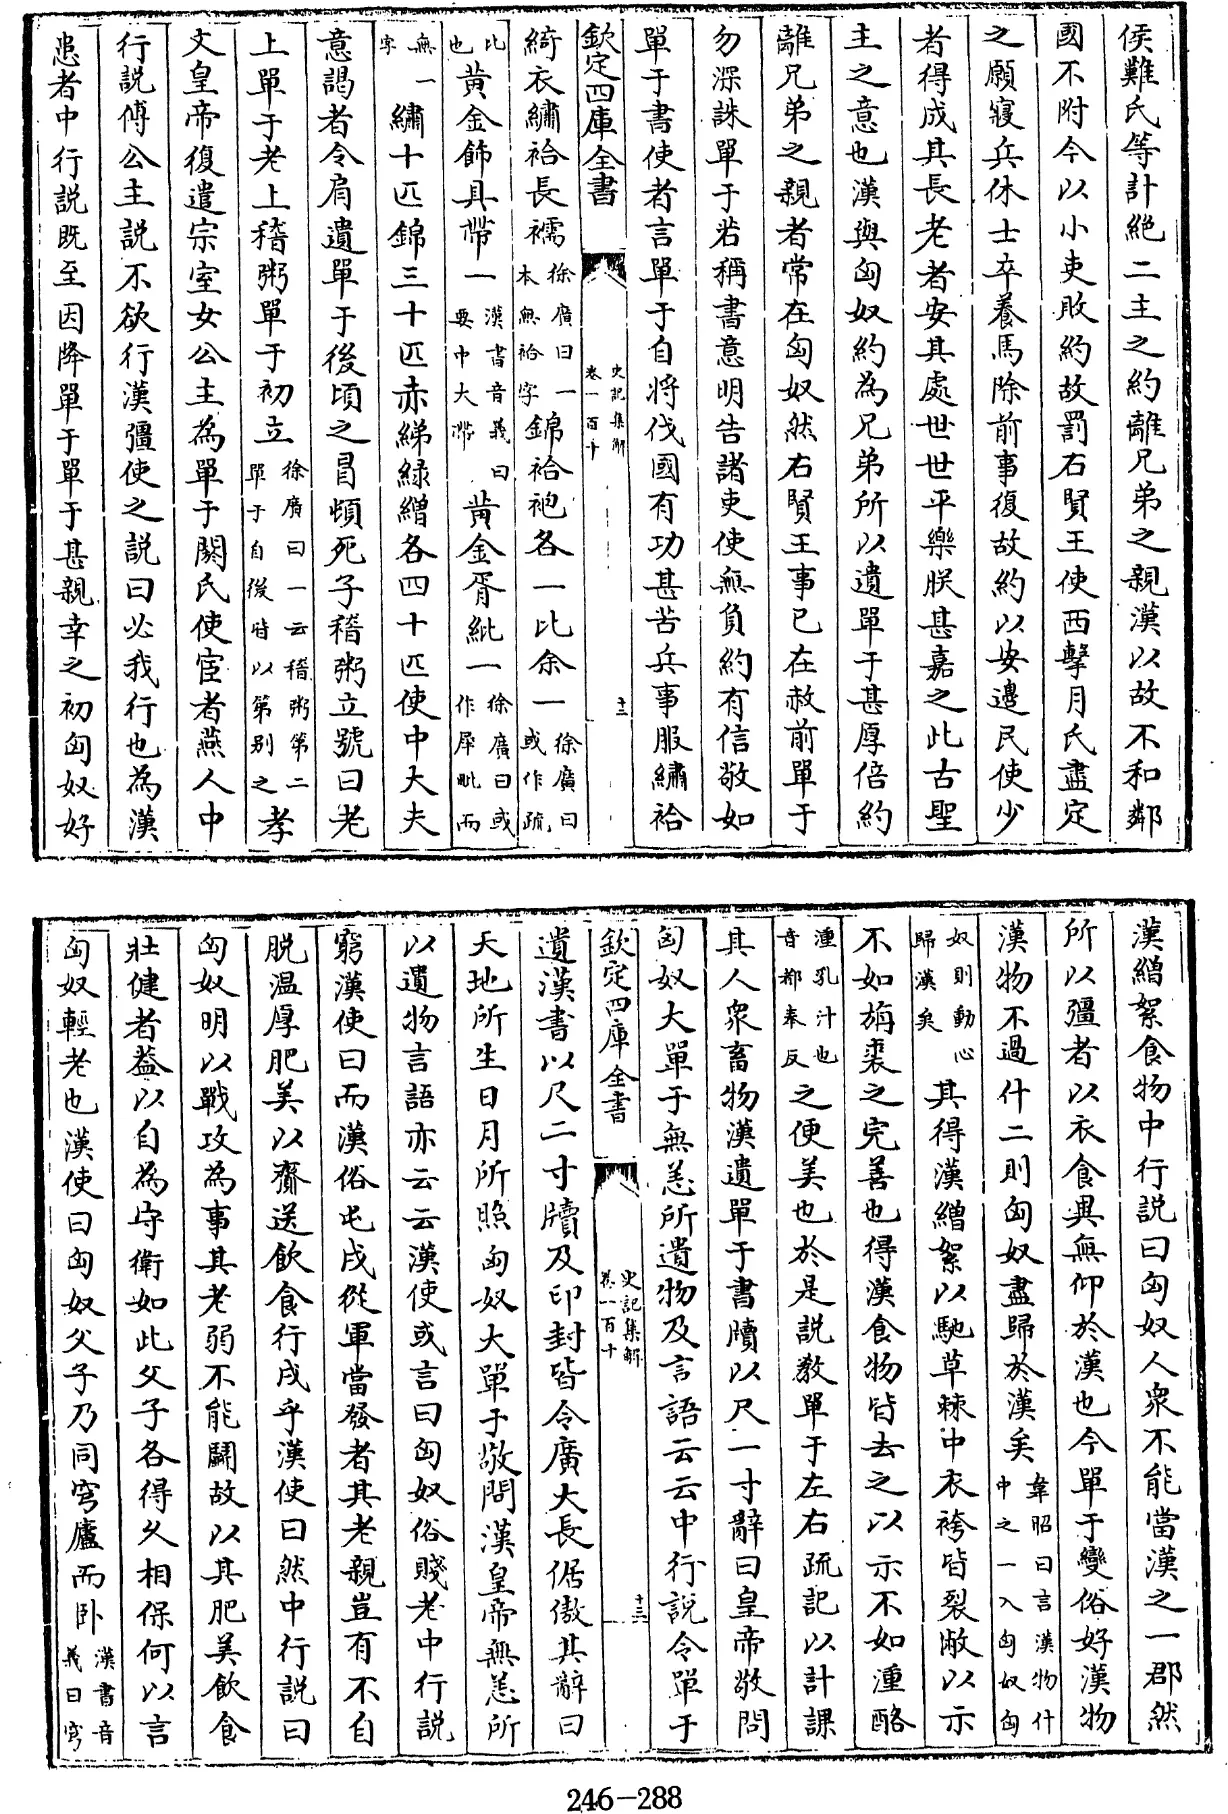 侯難氏等計絶二主之約離兄弟之親漢以故不和鄰
國不附今以小吏敗約故罰右賢王使西擊月氏盡定
之願寢兵休士卒養馬除前事復故約以安邊民使少
者得成其長老者安其處世世平樂朕甚嘉之此古聖
主之意也漢與匈奴約為兄弟所以遺單于甚厚倍約
離兄弟之親者常在匈奴然右賢王事已在赦前單于
勿深誅單于若稱書意明告諸吏使無負約有信敬如
單于書使者言單于自將伐國有功甚苦兵事服繡袷
欽定四庫全書 史記集解 卷一百十 十二
綺衣繡袷長襦徐廣曰一本無袷字錦袷袍各一比余一徐廣曰或作疏
比也黄金飾具帶一漢書音義曰要中大帶黄金胥紕一徐廣曰或作犀毗而
無一字繡十匹錦三十匹赤綈緑繒各四十匹使中大夫
意謁者令肩遺單于後頃之冒頓死子稽粥立號曰老
上單于老上稽粥單于初立徐廣曰一云稽粥第二單于自後皆以第别之孝
文皇帝復遣宗室女公主為單于閼氏使宦者燕人中
行説傅公主説不欲行漢彊使之説曰必我行也為漢
患者中行説既至因降單于單于甚親幸之初匈奴好
漢繒絮食物中行説曰匈奴人衆不能當漢之一郡然
所以彊者以衣食異無仰於漢也今單于變俗好漢物
漢物不過什二則匈奴盡歸於漢矣韋昭曰言漢物什中之一入匈奴匈
奴則動心歸漢矣其得漢繒絮以馳草棘中衣袴皆裂敝以示
不如旃裘之完善也得漢食物皆去之以示不如湩酪
湩乳汁也音都奉反之便美也於是説教單于左右疏記以計課
其人衆畜物漢遺單于書牘以尺一寸辭曰皇帝敬問
匈奴大單于無恙所遺物及言語云云中行説令單于
欽定四庫全書 史記集解 卷一百十 十三
遺漢書以尺二寸牘及印封皆令廣大長倨傲其辭曰
天地所生日月所照匈奴大單于敬問漢皇帝無恙所
以遺物言語亦云云漢使或言曰匈奴俗賤老中行説
窮漢使曰而漢俗屯戍從軍當發者其老親豈有不自
脱温厚肥美以齎送飲食行戍乎漢使曰然中行説曰
匈奴明以戰攻為事其老弱不能鬬故以其肥美飲食
壯健者益以自為守衛如此父子各得久相保何以言
匈奴輕老也漢使曰匈奴父子乃同穹廬而卧漢書音義曰穹
246-288